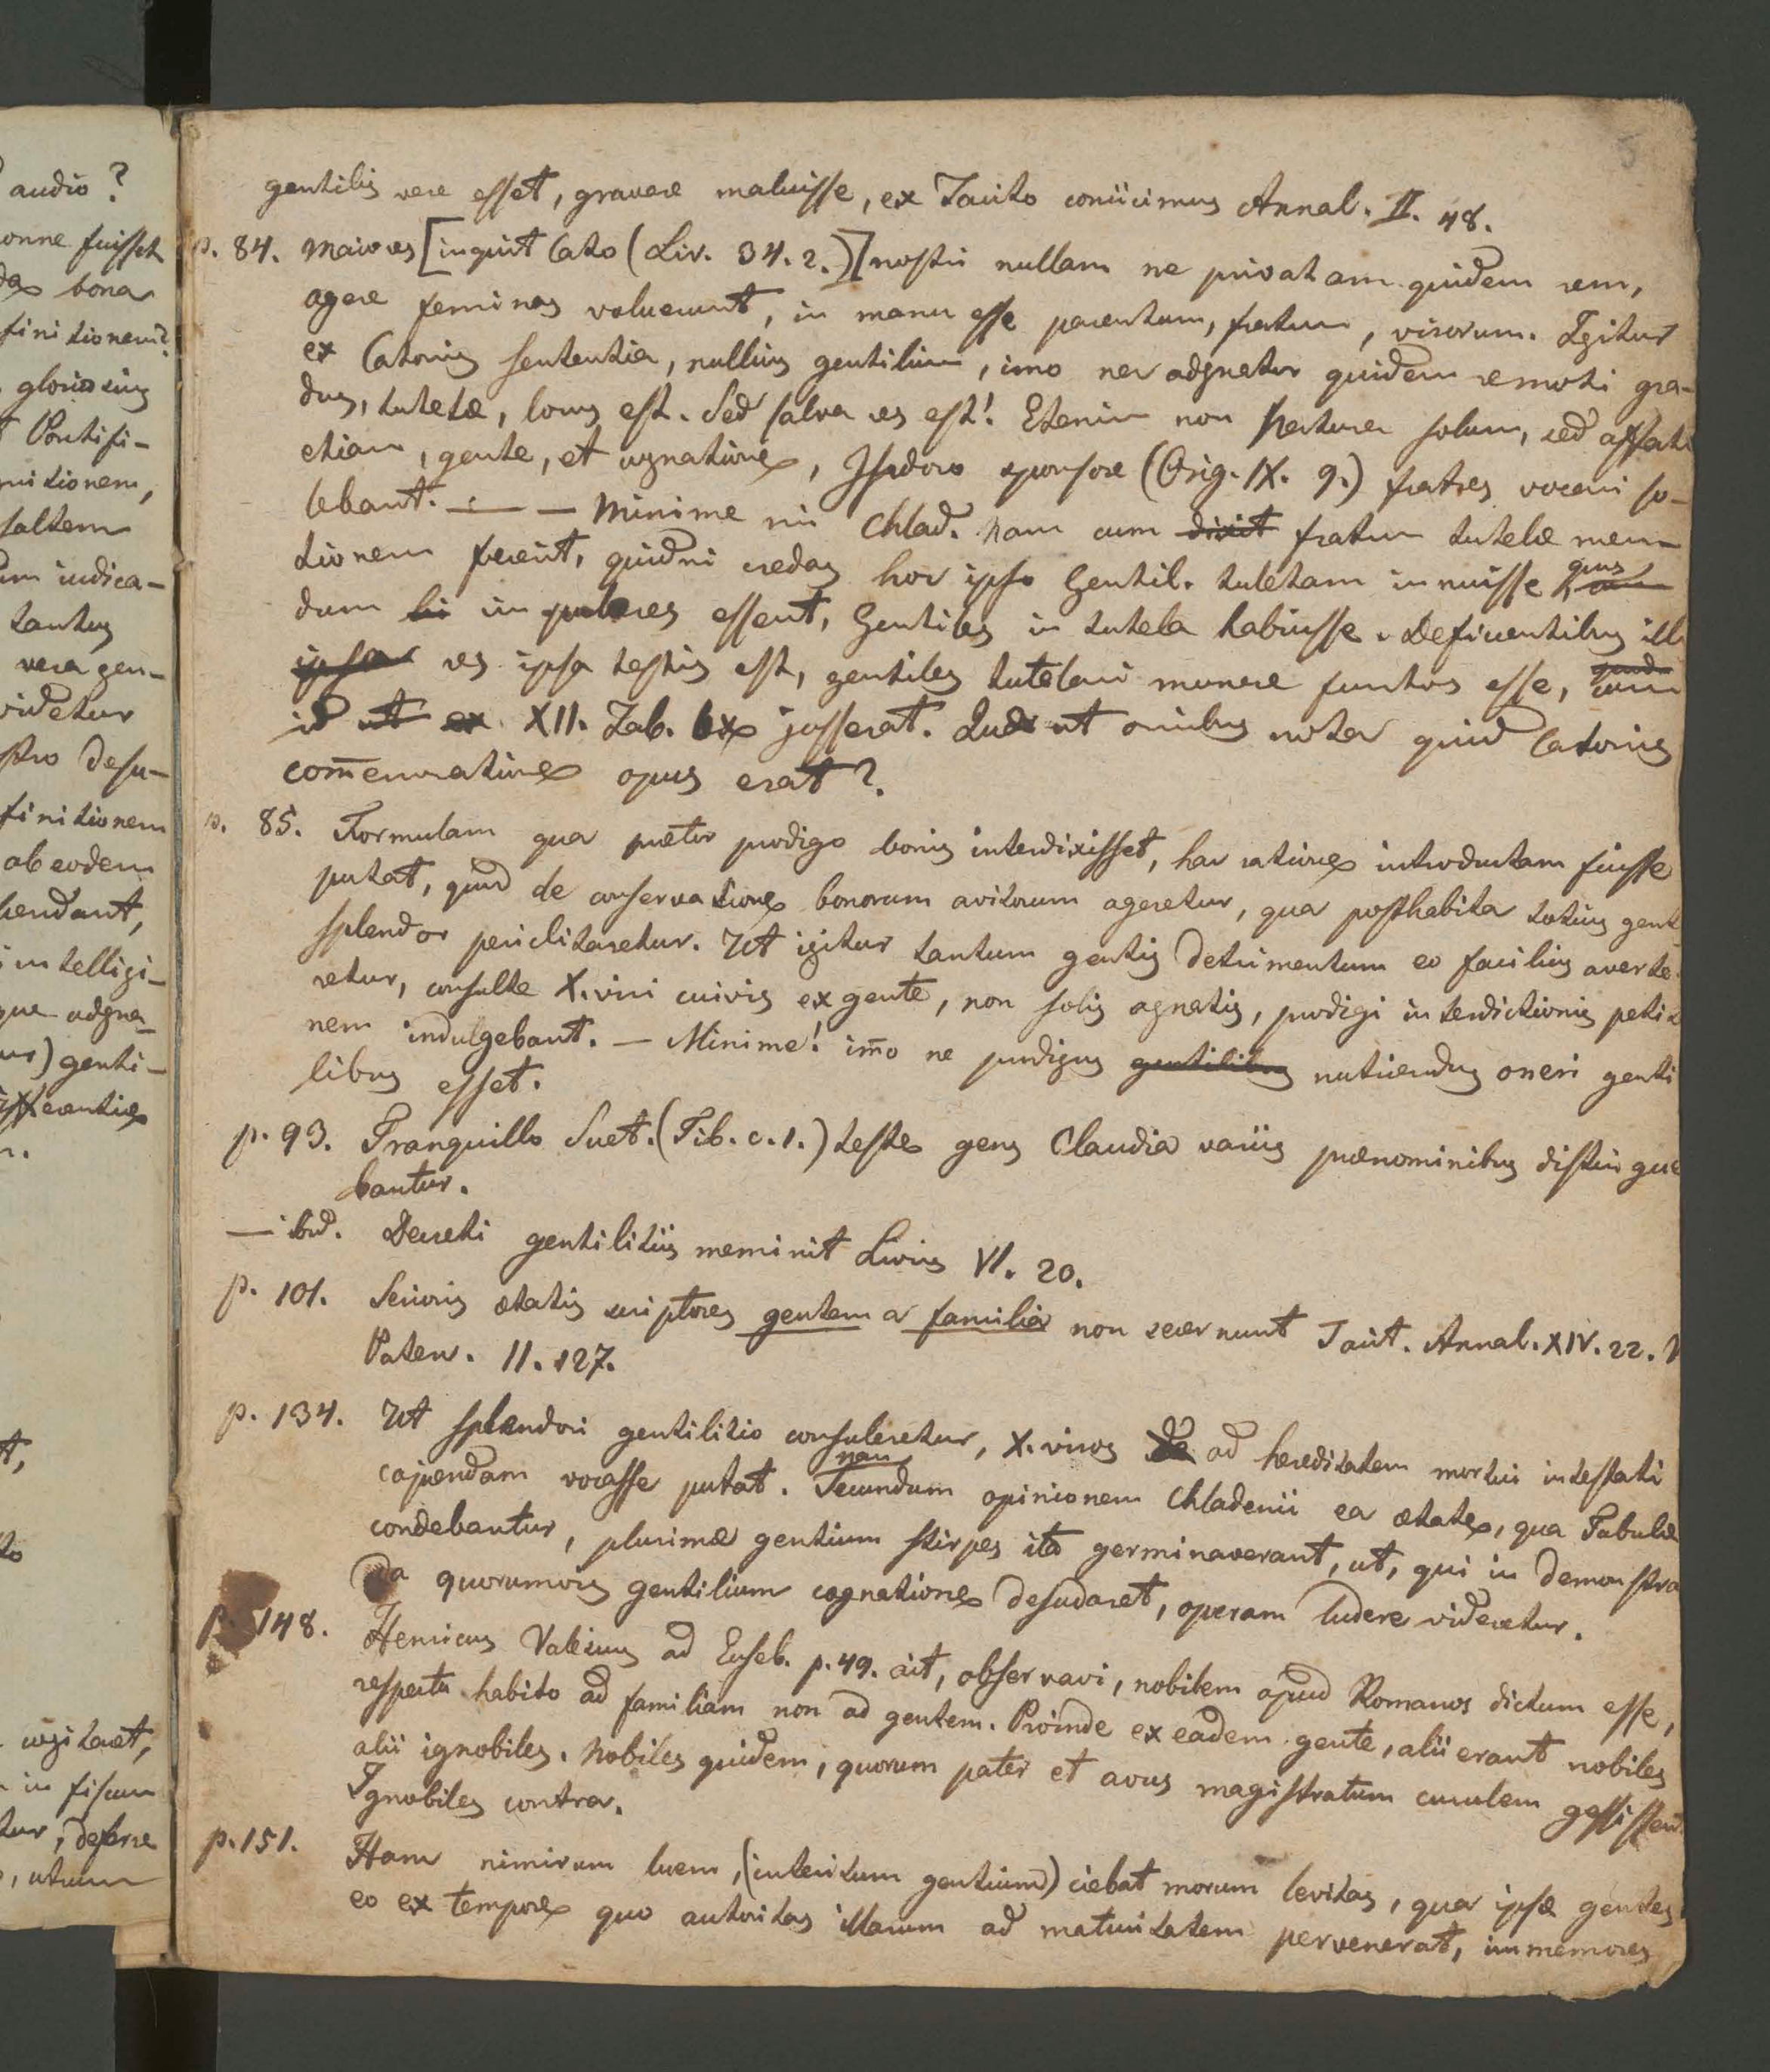 audio?
onne fuisset
bona
finitionem?
gloriosius
Pontifi-
nitionem,
saltem
indica-
tantus
vera gen-
videtur
stro desu-
finitionem
ab eodem
hendant,
intelligi-
que adgna-
ur) genti-
r.
t,
to
cogitaret,
in fiscum
tur, deferre
, utrum
5
gentilis vere esset, gravare maluisse, ex Tacito coniicimus Annal. II. 48.
p. 84. Maiores [inquit Cato (Liv. 34. 2.)] nostri nullam ne privatam quidem rem,
agere feminas voluerunt, in manu esse parentum, fratrum, virorum. Igitur
ex Catonis sententia, nullius gentilium, imo nec adgnator quidem remoti gra-
dus, tutelæ, locus est. Sed salva res est! Etenim non natura solum, sed affati
etiam, gente, et agnatione, Isidoro sponsore (Orig. IX. 9.) fratres vocari so-
lebant. — — Minime mi Chlad. nam cum dixit fratrum tutelæ men-
tionem fecerit, quidni credas hoc ipso Gentil. tutelam innuisse quas
dum li impuberes essent, Gentiles in tutela habuisse. Deficientibus illi
ipsa res ipsa testis est, gentiles tutelari munere functos esse, cum
id ut ex XII. Tab. lex jusserat. Quod ut omnibus nota quid Catonis
com̄emoratione opus erat?
p. 85. Formulam qua prætor prodigo bonis interdixisset, hac ratione introductam fuisse
putat, quod de conservatione bonorum avitorum ageretur, qua posthabita totius gent
splendor periclitaretur. Ut igitur tantum gentis detrimentum eo facilius averte-
retur, consulte X.viri cuivis ex gente, non solis agnatis, prodigi interdictionis petit
nem indulgebant. — Minime! im̄o ne prodigus gentilibus nutriendus oneri genti
libus esset.
p. 93. Tranquillo Suet. (Tib. c. 1.) teste gens Claudia variis prænominibus distingue
bantur.
— ibid. Decreti gentilitiis meminit Livius VI. 20.
p. 101. Serioris ætatis scriptores gentem a familia non secernunt Tacit. Annal. XIV. 22. V
Paterc. II. 127.
p. 134. Ut splendori gentilitio consuleretur, X.viros de ad hereditatem mortui intestati
capiendam vocasse putat. Secundum nam opinionem Chladenii ea ætate, qua Tabulæ
condebantur, plurimæ gentium stirpes ita germinaverant, ut, qui in demonstra
da quorumvis gentilium cognatione desudaret, operam ludere videretur.
p. 148. Henricus Valesius ad Euseb. p. 49. ait, observavi, nobilem apud Romanos dictum esse,
respectu habito ad familiam non ad gentem. Proinde ex eadem gente, alii erant nobiles
alii ignobiles. Nobiles quidem, quorum pater et avus magistratum curulem gessissent.
Ignobiles contra.
p. 151. Hanc nimirum luem, (interitum gentium) ciebat morum levitas, qua ipsæ gentes
eo ex tempore quo autoritas illarum ad maturitatem pervenerat, immemores